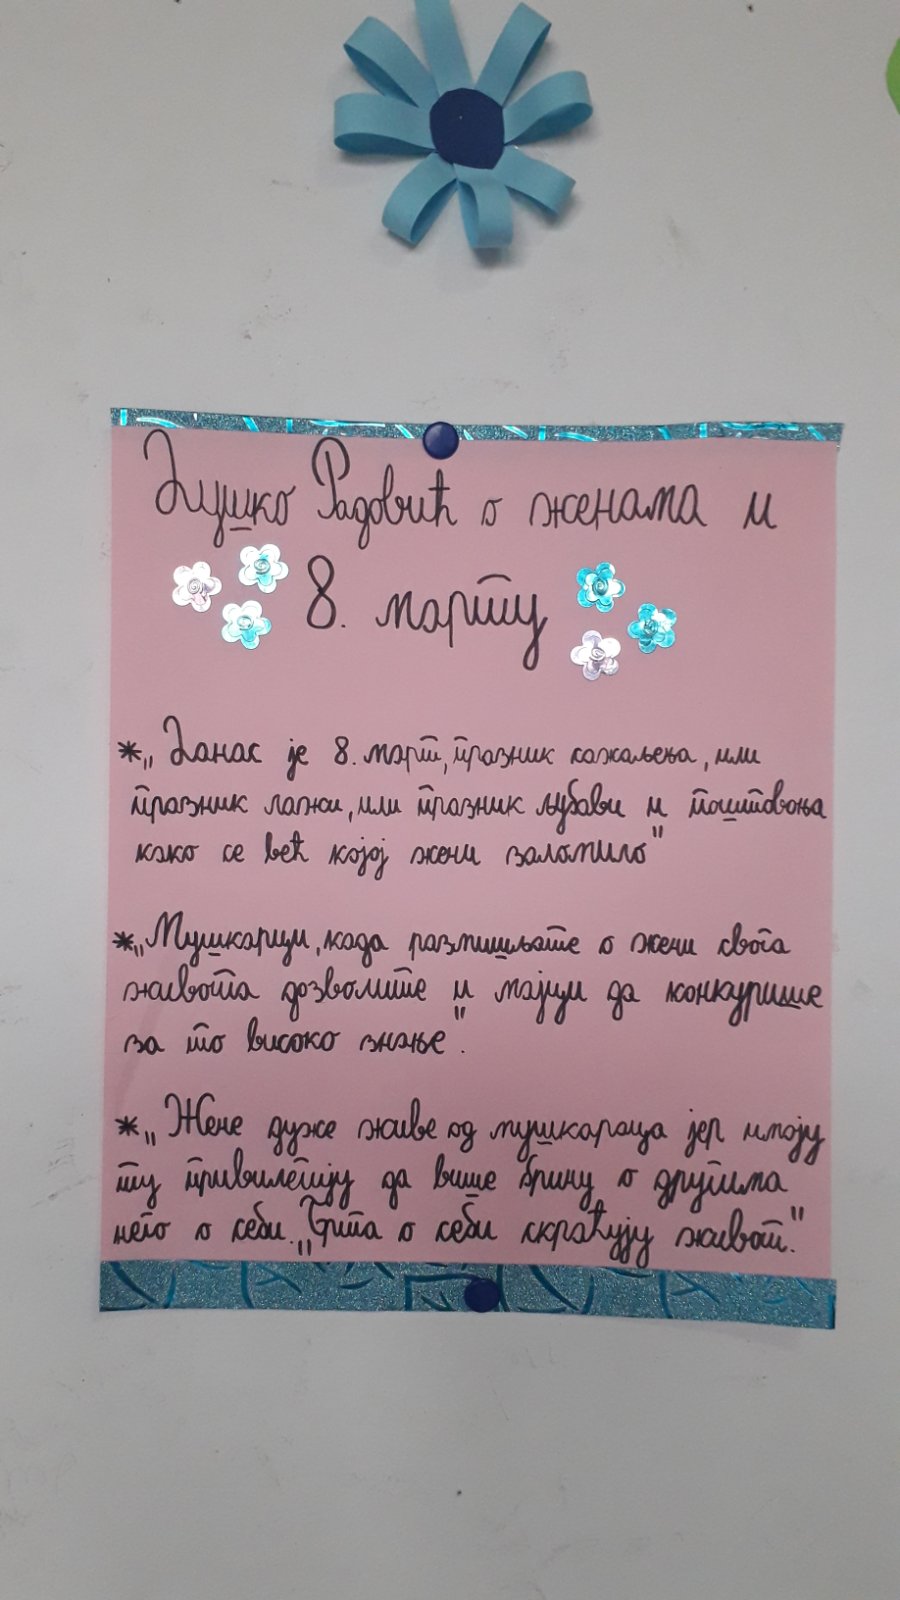 Душко Радовић о женама и
8. марту
*„Данас је 8. март, празник сажаљења, или
празник лажи, или празник љубави и поштовања
како се већ којој жени заломило"
*„Мушкарци, када размишљате о жени свога
живота дозволите и мајци да конкурише
за то високо знање".
*„Жене дуже живе од мушкараца јер имају
ту привилегију да више брину о другима
него о себи. „Брига о себи скраћују живот."